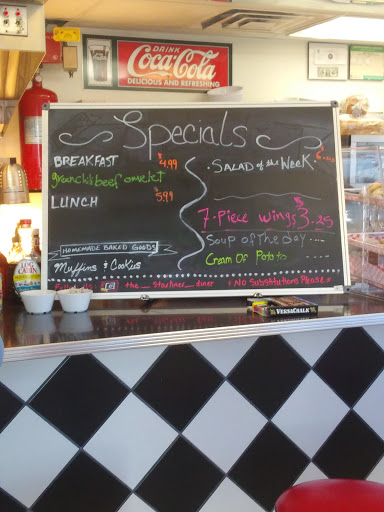 DRINK
Coca-Cola
DELICIOUS AND REFRESHING
Specials
BREAKFAST $4.99
green chili beef omelet
LUNCH $5.99
HOMEMADE BAKED GOODS
Muffins & Cookies
• SALAD of the WEEK
7-Piece Wings $3.25
Soup of the day ....
Cream Of Potato
the_starliner_diner
! No Substitutions Please
VERSACHALK